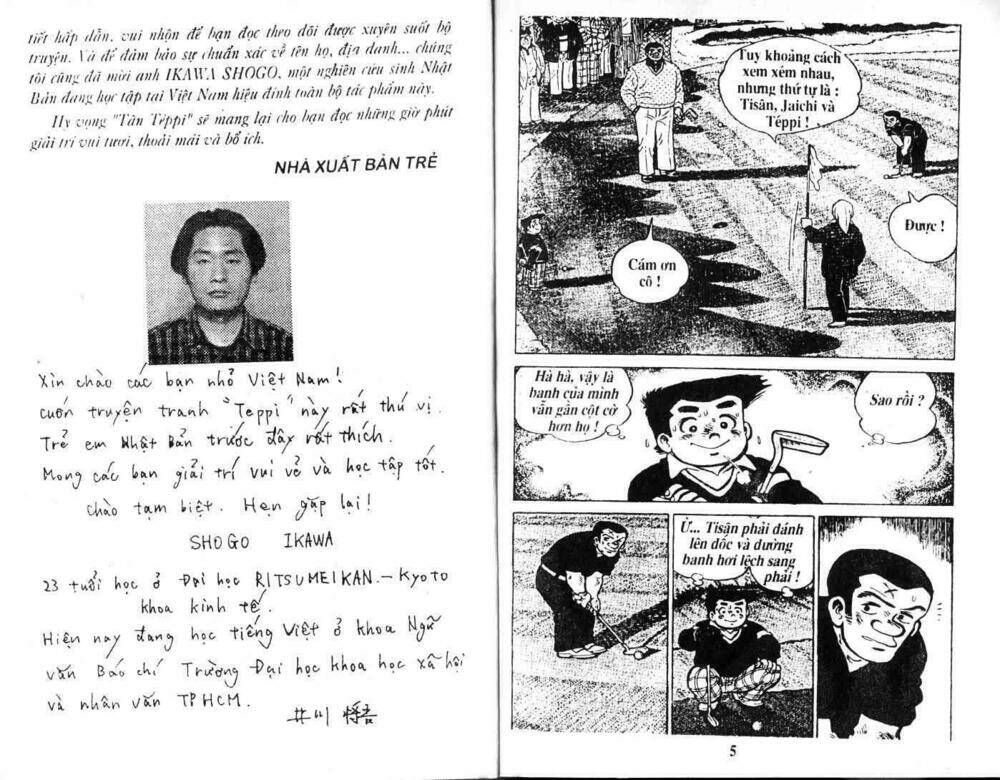 tiết hấp dẫn, vui nhộn để bạn đọc theo dõi được xuyên suốt bộ
truyện. Và để đảm bảo sự chuẩn xác về tên họ, địa danh... chúng
tôi cũng đã mời anh IKAWA SHOGO, một nghiên cứu sinh Nhật
Bản đang học tập tại Việt Nam hiệu đính toàn bộ tác phẩm này.
Hy vọng "Tân Téppi" sẽ mang lại cho bạn đọc những giờ phút
giải trí vui tươi, thoải mái và bổ ích.
NHÀ XUẤT BẢN TRẺ
Xin chào các bạn nhỏ Việt Nam!
cuốn truyện tranh "Teppi" này rất thú vị.
Trẻ em Nhật Bản trước đây rất thích.
Mong các bạn giải trí vui vẻ và học tập tốt.
chào tạm biệt. Hẹn gặp lại!
SHOGO IKAWA
23 tuổi học ở Đại học RITSUMEIKAN.-Kyoto
khoa kinh tế.
Hiện nay đang học tiếng Việt ở khoa Ngữ
văn Báo chí Trường Đại học khoa học xã hội
và nhân văn TPHCM.
井川 将吾
Tuy khoảng cách
xem xém nhau,
nhưng thứ tự là :
Tisân, Jaichi và
Téppi !
Được !
Cám ơn
cô !
Hà hà, vậy là
banh của mình
vẫn gần cột cờ
hơn họ !
Sao rồi ?
Ừ... Tisân phải đánh
lên dốc và đường
banh hơi lệch sang
phải !
5